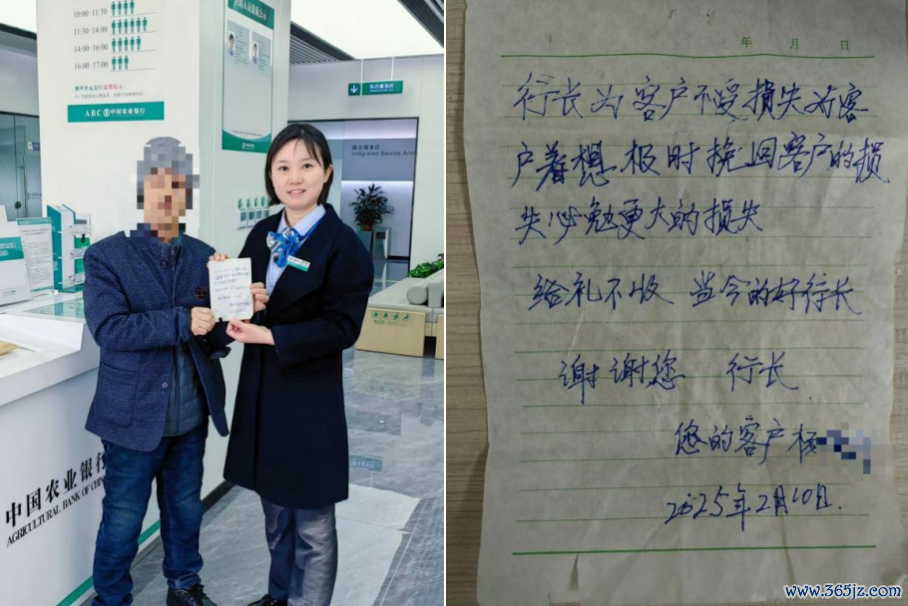 10:00-11:30
11:30-14:00
14:00-16:00
16:00-17:00
ABC 中国农业银行
综合服务区
Integrated Service Area
中国农业银行
AGRICULTURAL BANK OF CHIN
年 月 日
行长为客户不受损失为客
户着想极时挽回客户的损
失必勉更大的损失
给礼不收 当今的好行长
谢谢您 行长
您的客户
2025年2月10日.
www.365jz.com